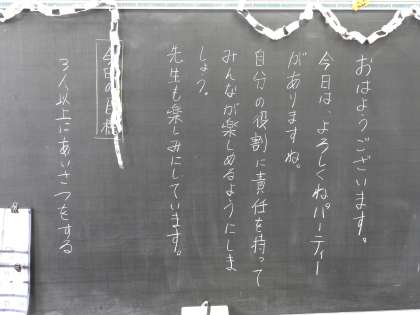 おはようございます。
今日は、よろしくねパーティー
がありますね。
自分の役割に責任を持って
みんなが楽しめるようにしま
しょう。
先生も楽しみにしています。
今日の目標
3人以上にあいさつをする